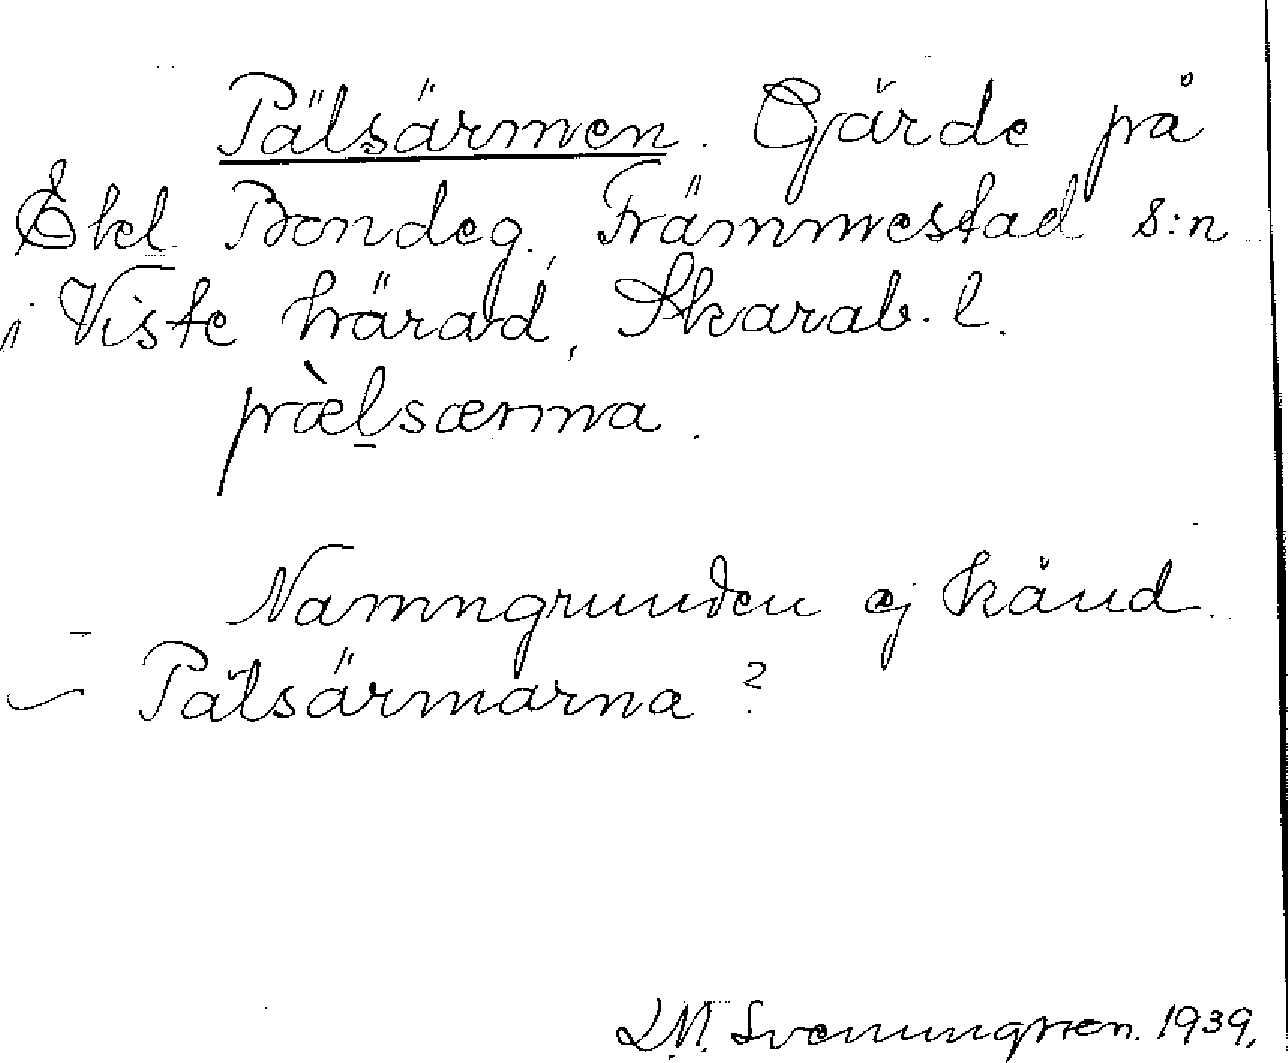 Pälsärmen. Gärde på
Ekl. Bondeg., Främmestad s:n
i Viste härad, Skarab. l.
pæ̀lsærma.
Namngrunden ej känd.
– Pälsärmarna?
L.M. Svenungsen. 1939.